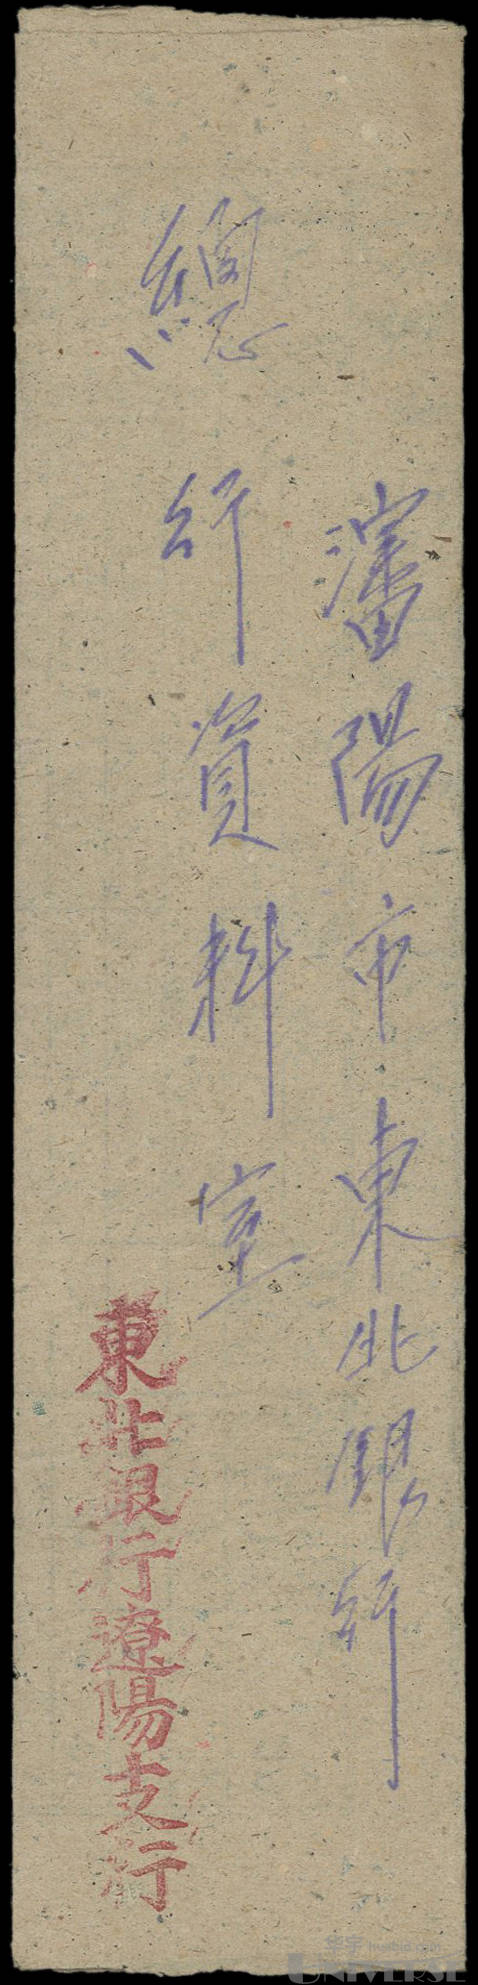 瀋陽市東北銀行
總行資料室
東北銀行遼陽支行
华宇 huabid.com
UNIVERSE